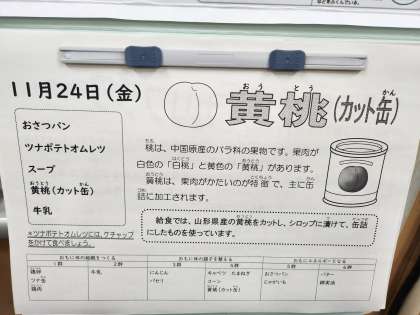 11月24日(金)
黄桃(カット缶)
おうとう かん
おさつパン
ツナポテトオムレツ
スープ
おうとう かん
黄桃(カット缶)
牛乳
※ツナポテトオムレツには、ケチャップ
をかけて食べましょう。
桃は、中国原産のバラ科の果物です。果肉が
白色の「白桃」と黄色の「黄桃」があります。
黄桃は、果肉がかたいのが特徴で、主に缶
詰に加工されます。
給食では、山形県産の黄桃をカットし、シロップに漬けて、缶詰
にしたものを使っています。
おもに体の組織をつくる おもに体の調子を整える おもにエネルギーとなる
1群 2群 3群 4群 5群 6群
鶏卵 牛乳 にんじん キャベツ たまねぎ おさつパン バター
ツナ缶 パセリ コーン じゃがいも
鶏肉 黄桃(カット缶)